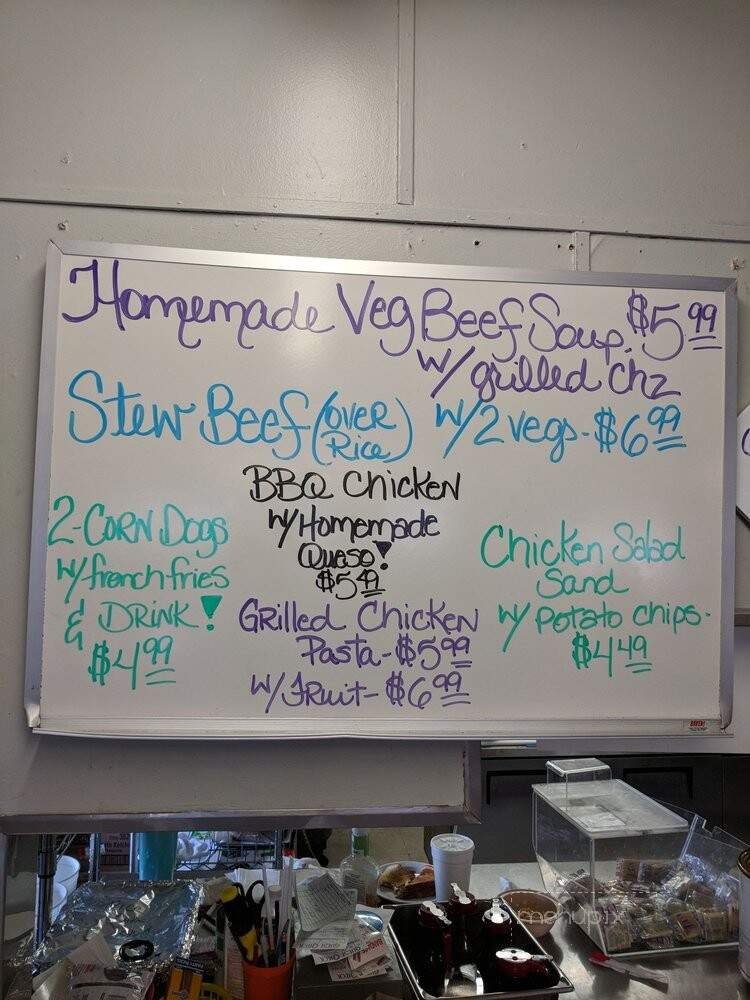 Homemade Veg Beef Soup. $5.99
w/ grilled chz
Stew Beef (over Rice) w/2 vegs - $6.99
BBQ Chicken
w/Homemade
Queso!
$5.49
2-Corn Dogs
w/french fries
& Drink!
$4.99
Grilled Chicken
Pasta - $5.99
w/ Fruit - $6.99
Chicken Salad
Sand
w/ Potato chips -
$4.49
menupix